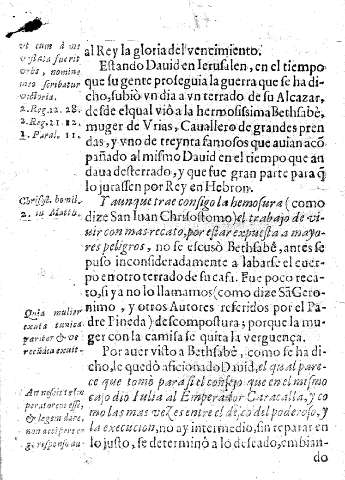 al Rey la gloria del vencimiento.
Estando Dauid en Ierusalen, en el tiempo
que su gente proseguia la guerra que se ha di-
cho, subiò vn dia a vn terrado de su Alcazar,
desde el qual viô a la hermosissima Bethsabè,
muger de Vrias, Cauallero de grandes pren
das, y vno de treynta famosos que auian acō
pañado al mismo Dauid en el tiempo que an
daua desterrado, y que fue gran parte para q̃
lo jurassen por Rey en Hebron.
Y aunque trae consigo la hemosura (como
dize San Iuan Chrisostomo) el trabajo de vi-
uir con mas recato, por estar expuesta a mayo-
res peligros, no se escusò Bethsabê, antes se
puso inconsideradamente a labarse el cuer-
po en otro terrado de su casa. Fue poco reca-
to, si ya no lo llamamos (como dize Sã Gero-
nimo, y otros Autores referidos por el Pa-
dre Pineda) descompostura; porque la mu-
ger con la camisa se quita la verguença.
Por auer visto a Bethsabè, como se ha di-
cho, le quedò aficionado Dauid, el qual pare-
ce que tomò para si el consejo que en el mismo
caso dio Iulia al Emperador Caracalla, y co
mo las mas vezes entre el deseo del poderoso, y
la execucion, no ay intermedio, sin reparar en
lo justo, se determinò a lo deseado, embian-
do
vt cum à me
vastata fuerit
vrbs, nomine
meo scribatur
victoria.
2. Reg. 12. 28.
2. Reg. 11. 12.
1. Paral. 11.
Chrysost. homil.
2. in Matth.
Quia mulier
exuta tunica
pariter & ve-
recūdia exuit.
An nescis te im
peratorem esse,
& leges dare,
non accipere